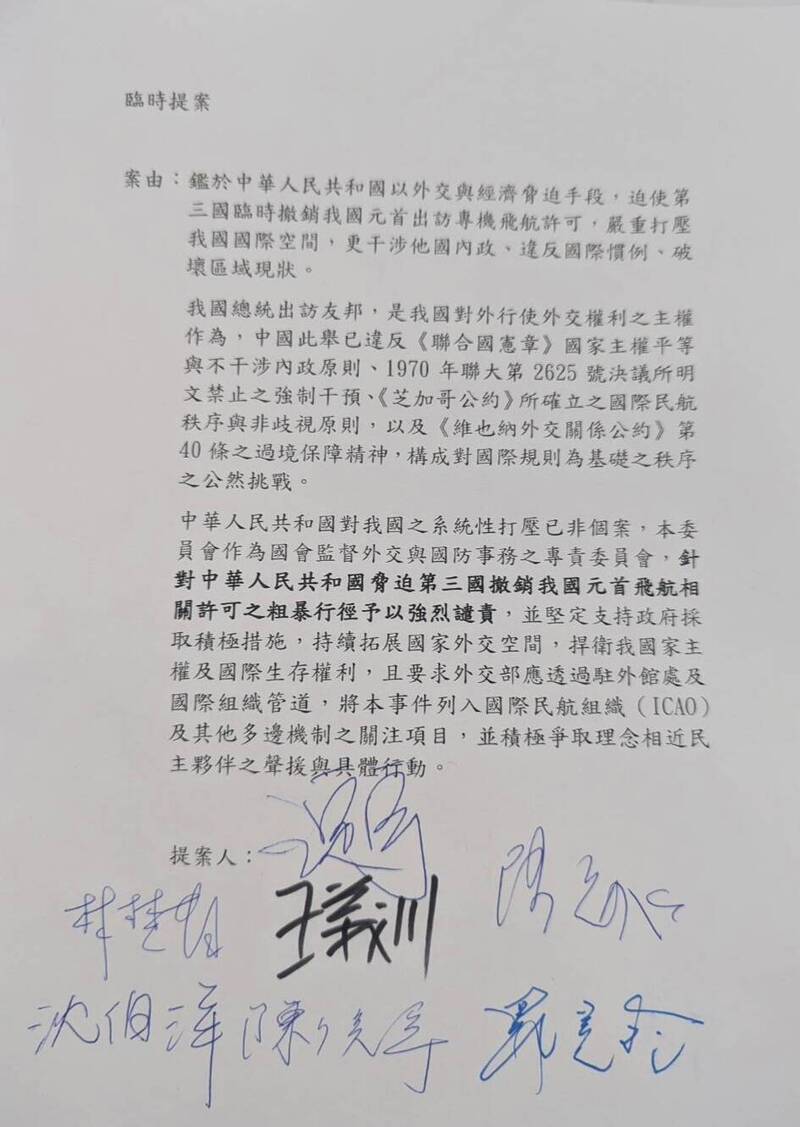 臨時提案
案由：鑑於中華人民共和國以外交與經濟脅迫手段，迫使第
三國臨時撤銷我國元首出訪專機飛航許可，嚴重打壓
我國國際空間，更干涉他國內政、違反國際慣例、破
壞區域現狀。
我國總統出訪友邦，是我國對外行使外交權利之主權
作為，中國此舉已違反《聯合國憲章》國家主權平等
與不干涉內政原則、1970 年聯大第 2625 號決議所明
文禁止之強制干預、《芝加哥公約》所確立之國際民航
秩序與非歧視原則，以及《維也納外交關係公約》第
40 條之過境保障精神，構成對國際規則為基礎之秩序
之公然挑戰。
中華人民共和國對我國之系統性打壓已非個案，本委
員會作為國會監督外交與國防事務之專責委員會，針
對中華人民共和國脅迫第三國撤銷我國元首飛航相
關許可之粗暴行徑予以強烈譴責，並堅定支持政府採
取積極措施，持續拓展國家外交空間，捍衛我國家主
權及國際生存權利，且要求外交部應透過駐外館處及
國際組織管道，將本事件列入國際民航組織（ICAO）
及其他多邊機制之關注項目，並積極爭取理念相近民
主夥伴之聲援與具體行動。
提案人：
王義川
沈伯洋 陳俊宇